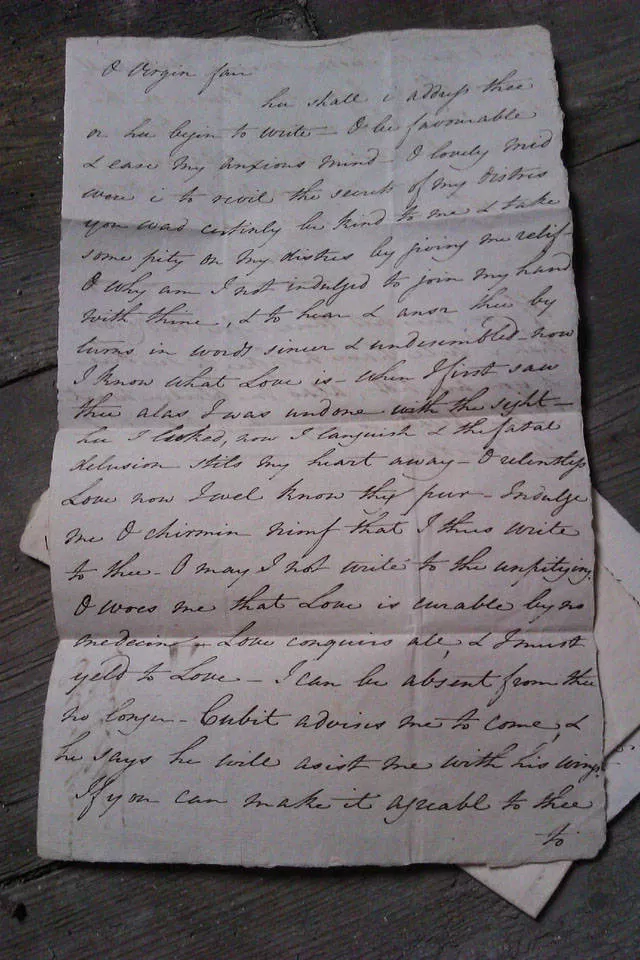 O Virgin fair
hu shall i address thee
or hu begin to write - O be favourable
& ease my anxious mind - O lovely med
were i to revil the secret of my distris
you wad certinly be kind to me & take
some pity on my distres by giving me relif
O why am I not indulged to join my hand
with thine, & to hear & ansr thee by
turns in words sincer & undesimbled - now
I know what Love is - when I first saw
thee alas I was undone with the sight -
hu I looked, now I languish & the fatal
delusion stils my heart away - O relentless
Love now I wel know thy pur - Indulge
me O chirmin nimf that I thus write
to thee - O may I not write to the unpitying
O woes me that Love is curable by no
medecine - Love conquirs all, & I must
yeld to Love - I can be absent from thee
no longer - Cubit advises me to come, &
he says he will asist me with his wings
If you can make it agreabl to thee
to